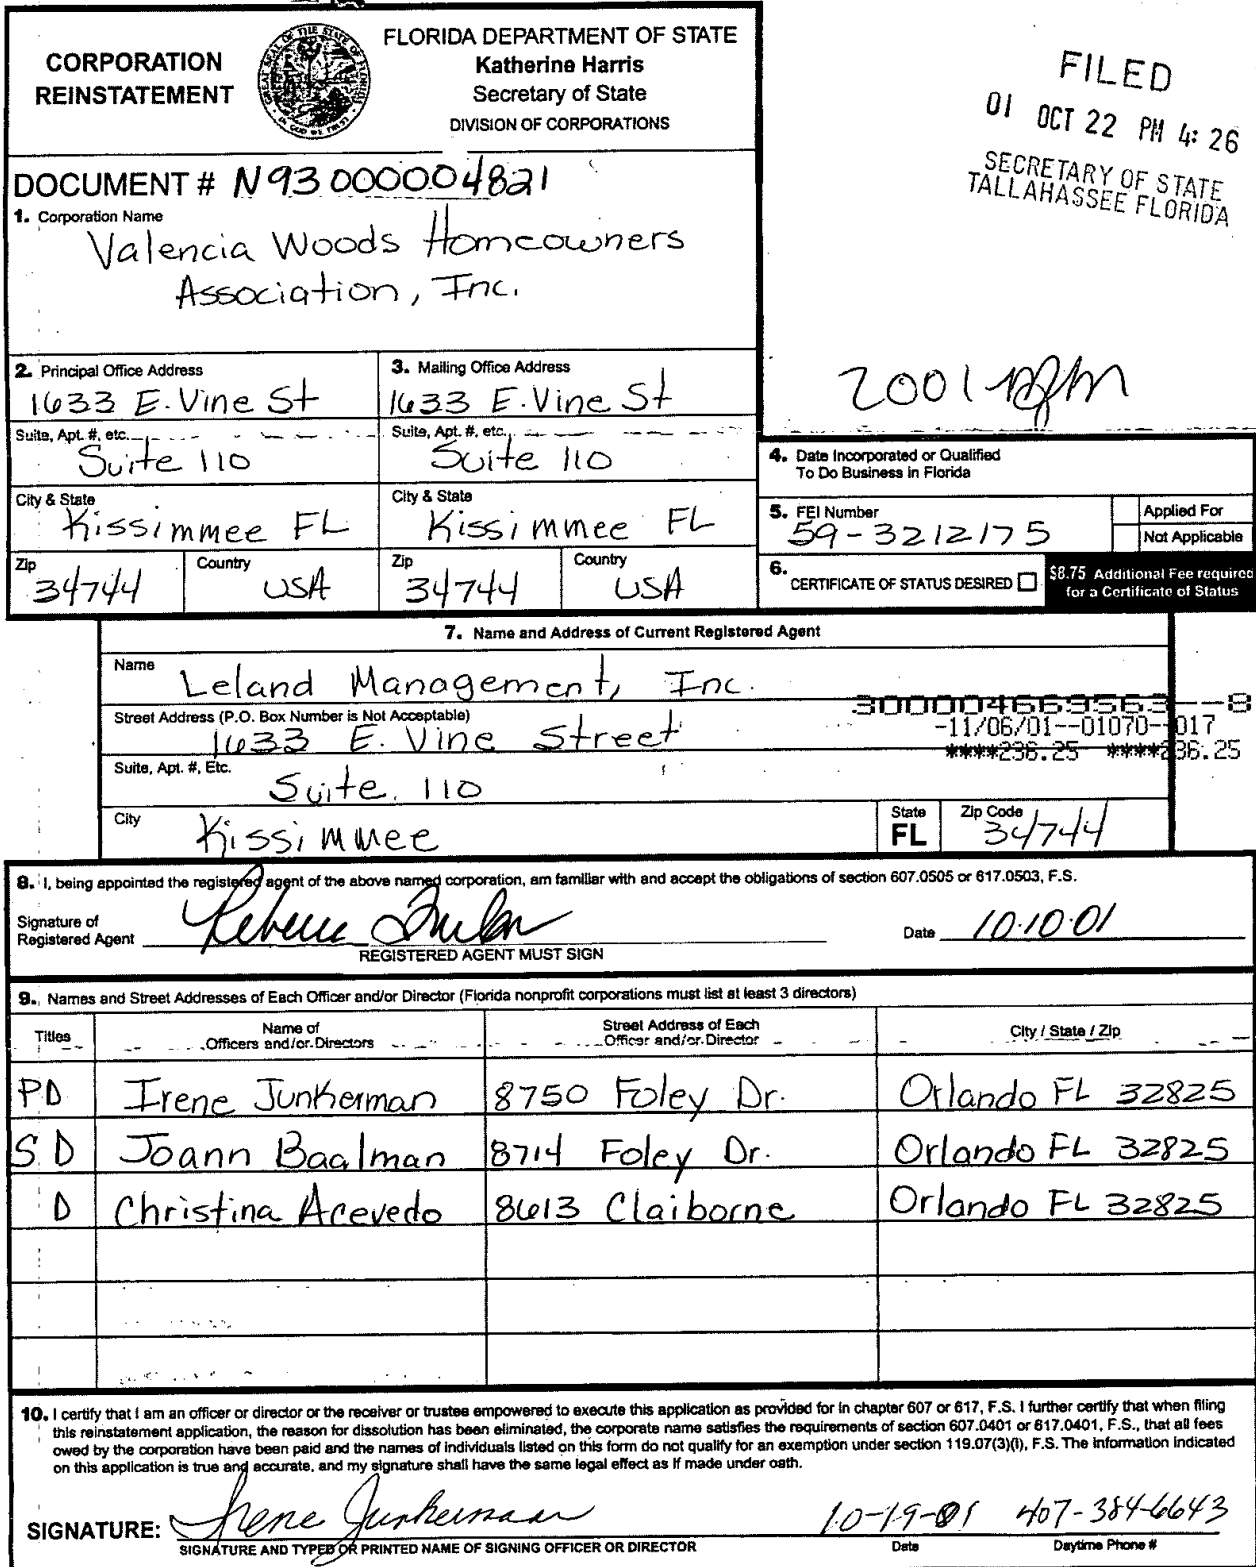 CORPORATION
REINSTATEMENT
GREAT SEAL OF THE STATE OF FLORIDA
IN GOD WE TRUST
FLORIDA DEPARTMENT OF STATE
Katherine Harris
Secretary of State
DIVISION OF CORPORATIONS
FILED
01 OCT 22 PM 4: 26
SECRETARY OF STATE
TALLAHASSEE FLORIDA
DOCUMENT # N93000004821
1. Corporation Name
Valencia Woods Homeowners
Association, Inc.
2001
2. Principal Office Address
1633 E. Vine St
Suite, Apt. #, etc.
Suite 110
City & State
Kissimmee FL
Zip
34744
Country
USA
3. Mailing Office Address
1633 E. Vine St
Suite, Apt. #, etc.
Suite 110
City & State
Kissimmee FL
Zip
34744
Country
USA
4. Date Incorporated or Qualified
To Do Business in Florida
5. FEI Number
59-3212175
Applied For
Not Applicable
6. CERTIFICATE OF STATUS DESIRED
$8.75 Additional Fee required
for a Certificate of Status
7. Name and Address of Current Registered Agent
Name
Leland Management, Inc.
300004669563--8
-11/06/01--01070--017
****236.25 ****236.25
Street Address (P.O. Box Number is Not Acceptable)
1633 E. Vine Street
Suite, Apt. #, Etc.
Suite. 110
City
Kissimmee
State
FL
Zip Code
34744
8. I, being appointed the registered agent of the above named corporation, am familiar with and accept the obligations of section 607.0505 or 617.0503, F.S.
Signature of
Registered Agent
REGISTERED AGENT MUST SIGN
Date 10.10.01
9. Names and Street Addresses of Each Officer and/or Director (Florida nonprofit corporations must list at least 3 directors)
Titles
Name of
Officers and/or Directors
Street Address of Each
Officer and/or Director
City / State / Zip
PD Irene Junkerman 8750 Foley Dr. Orlando FL 32825
S D Joann Baalman 8714 Foley Dr. Orlando FL 32825
D Christina Acevedo 8613 Claiborne Orlando FL 32825
10. I certify that I am an officer or director or the receiver or trustee empowered to execute this application as provided for in chapter 607 or 617, F.S. I further certify that when filing
this reinstatement application, the reason for dissolution has been eliminated, the corporate name satisfies the requirements of section 607.0401 or 617.0401, F.S., that all fees
owed by the corporation have been paid and the names of individuals listed on this form do not qualify for an exemption under section 119.07(3)(i), F.S. The information indicated
on this application is true and accurate, and my signature shall have the same legal effect as if made under oath.
SIGNATURE: Irene Junkerman 10-19-01 407-384-6643
SIGNATURE AND TYPED OR PRINTED NAME OF SIGNING OFFICER OR DIRECTOR
Date
Daytime Phone #